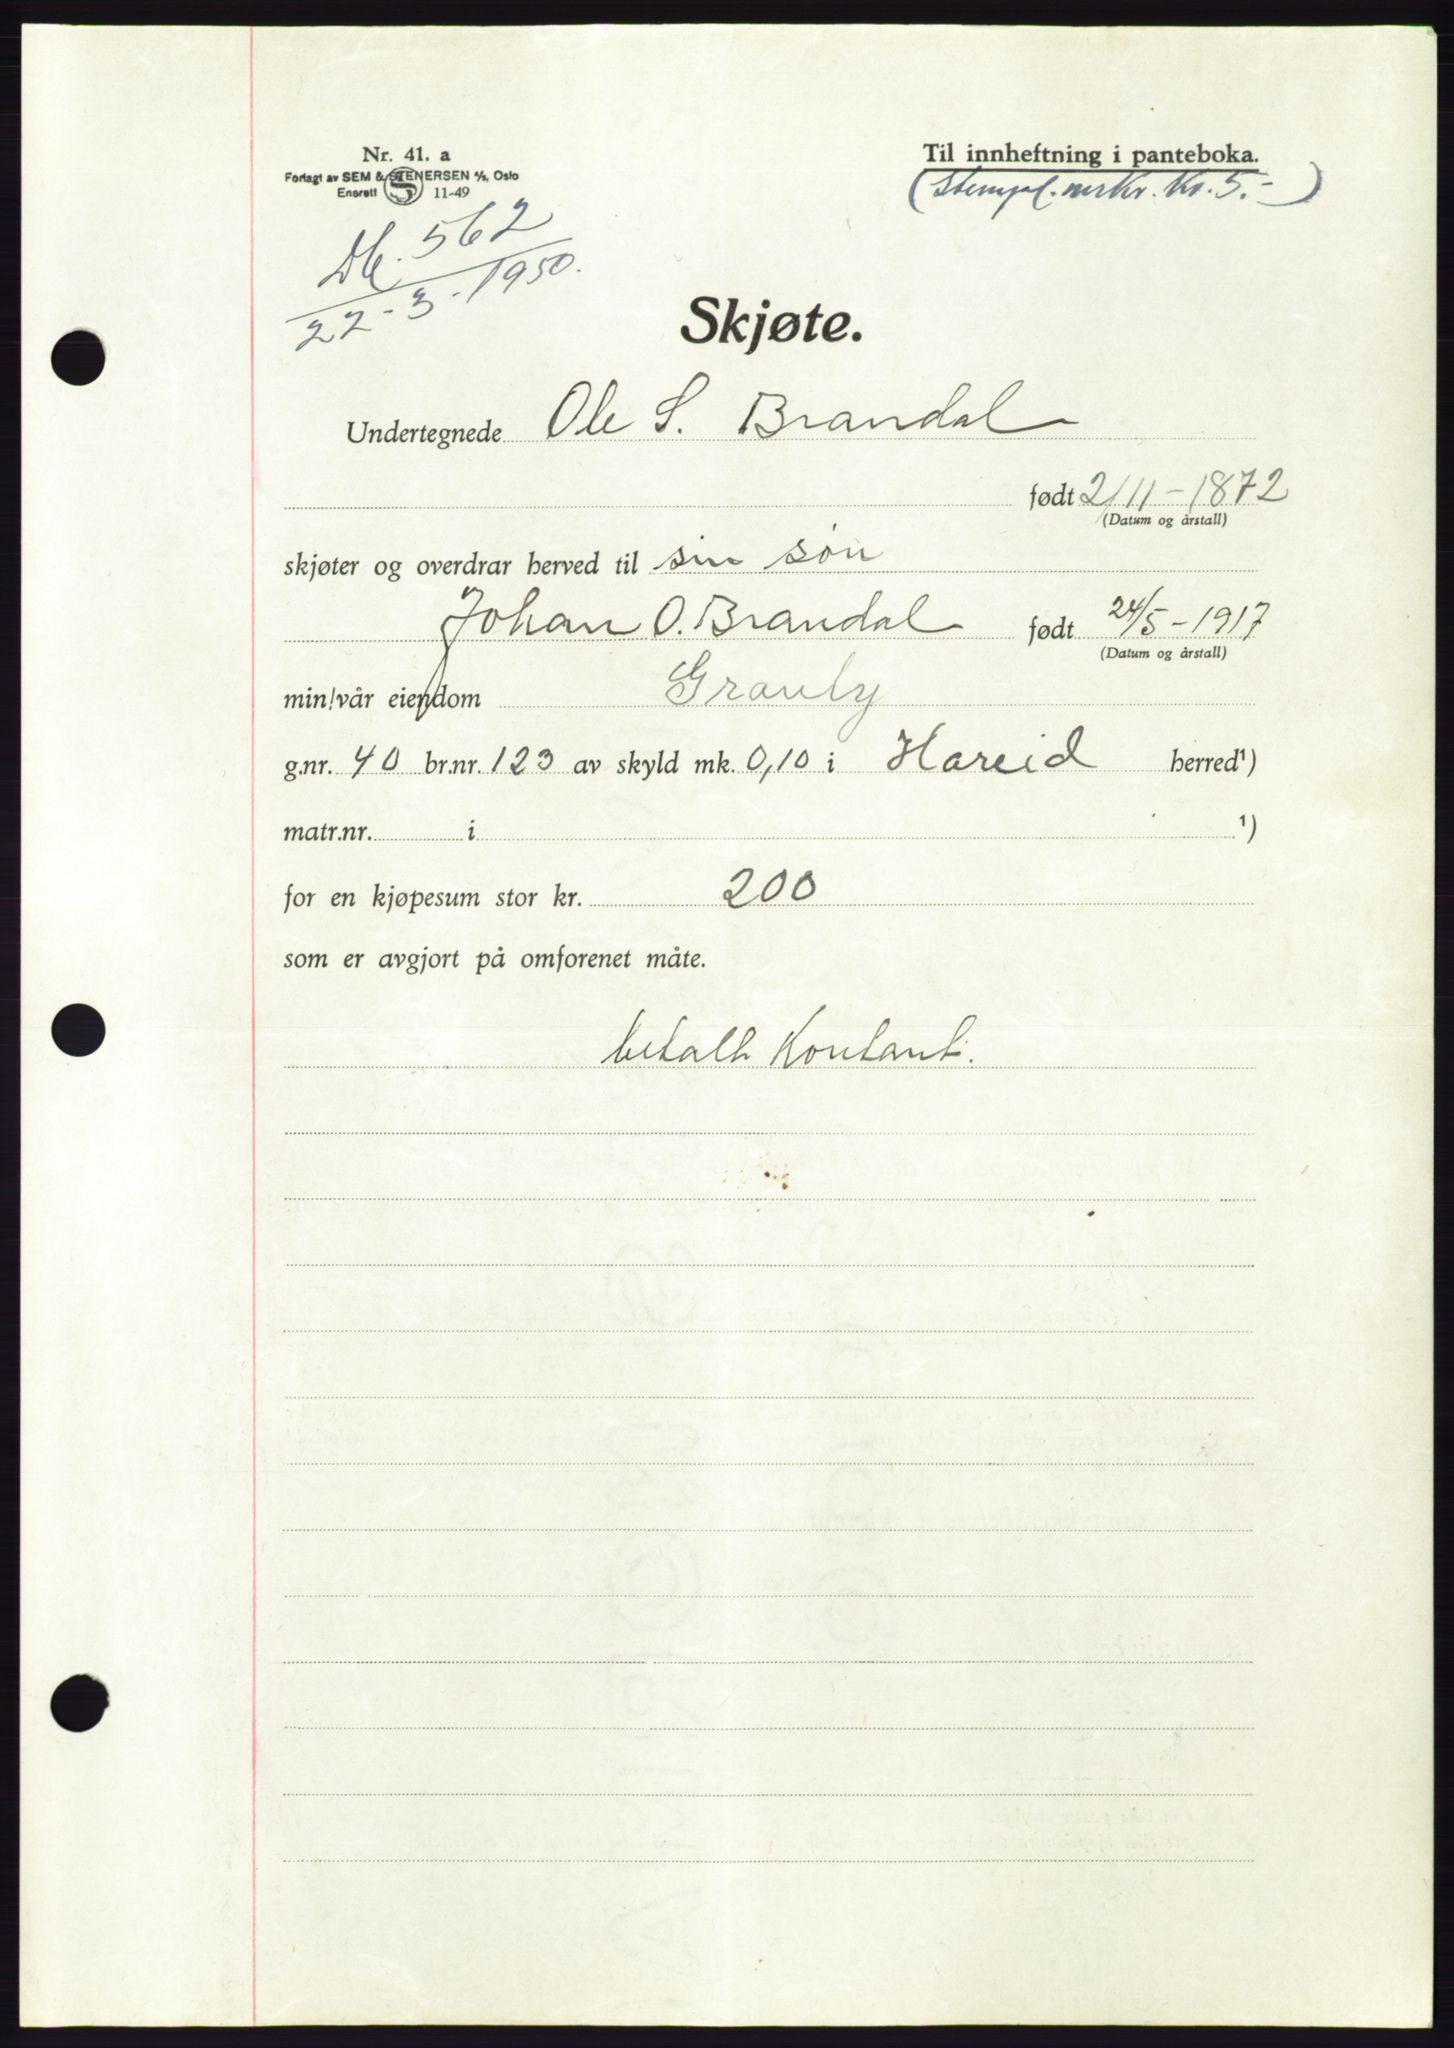 Nr. 41. a
Forlagt av SEM & STENERSEN A/S, Oslo
Enerett S 11-49
Til innheftning i panteboka.
(Stempl. merkr. Kr. 5.-)
Db. 562
22-3-1950.
Skjøte.
Undertegnede Ole S. Brandal
født 2/11-1872
(Datum og årstall)
skjøter og overdrar herved til sin søn
Johan O. Brandal født 24/5-1917
(Datum og årstall)
min/vår eiendom Granly
g.nr. 40 br.nr. 123 av skyld mk. 0,10 i Hareid herred¹)
matr.nr. i ¹)
for en kjøpesum stor kr. 200
som er avgjort på omforenet måte.
betalt Kontant.